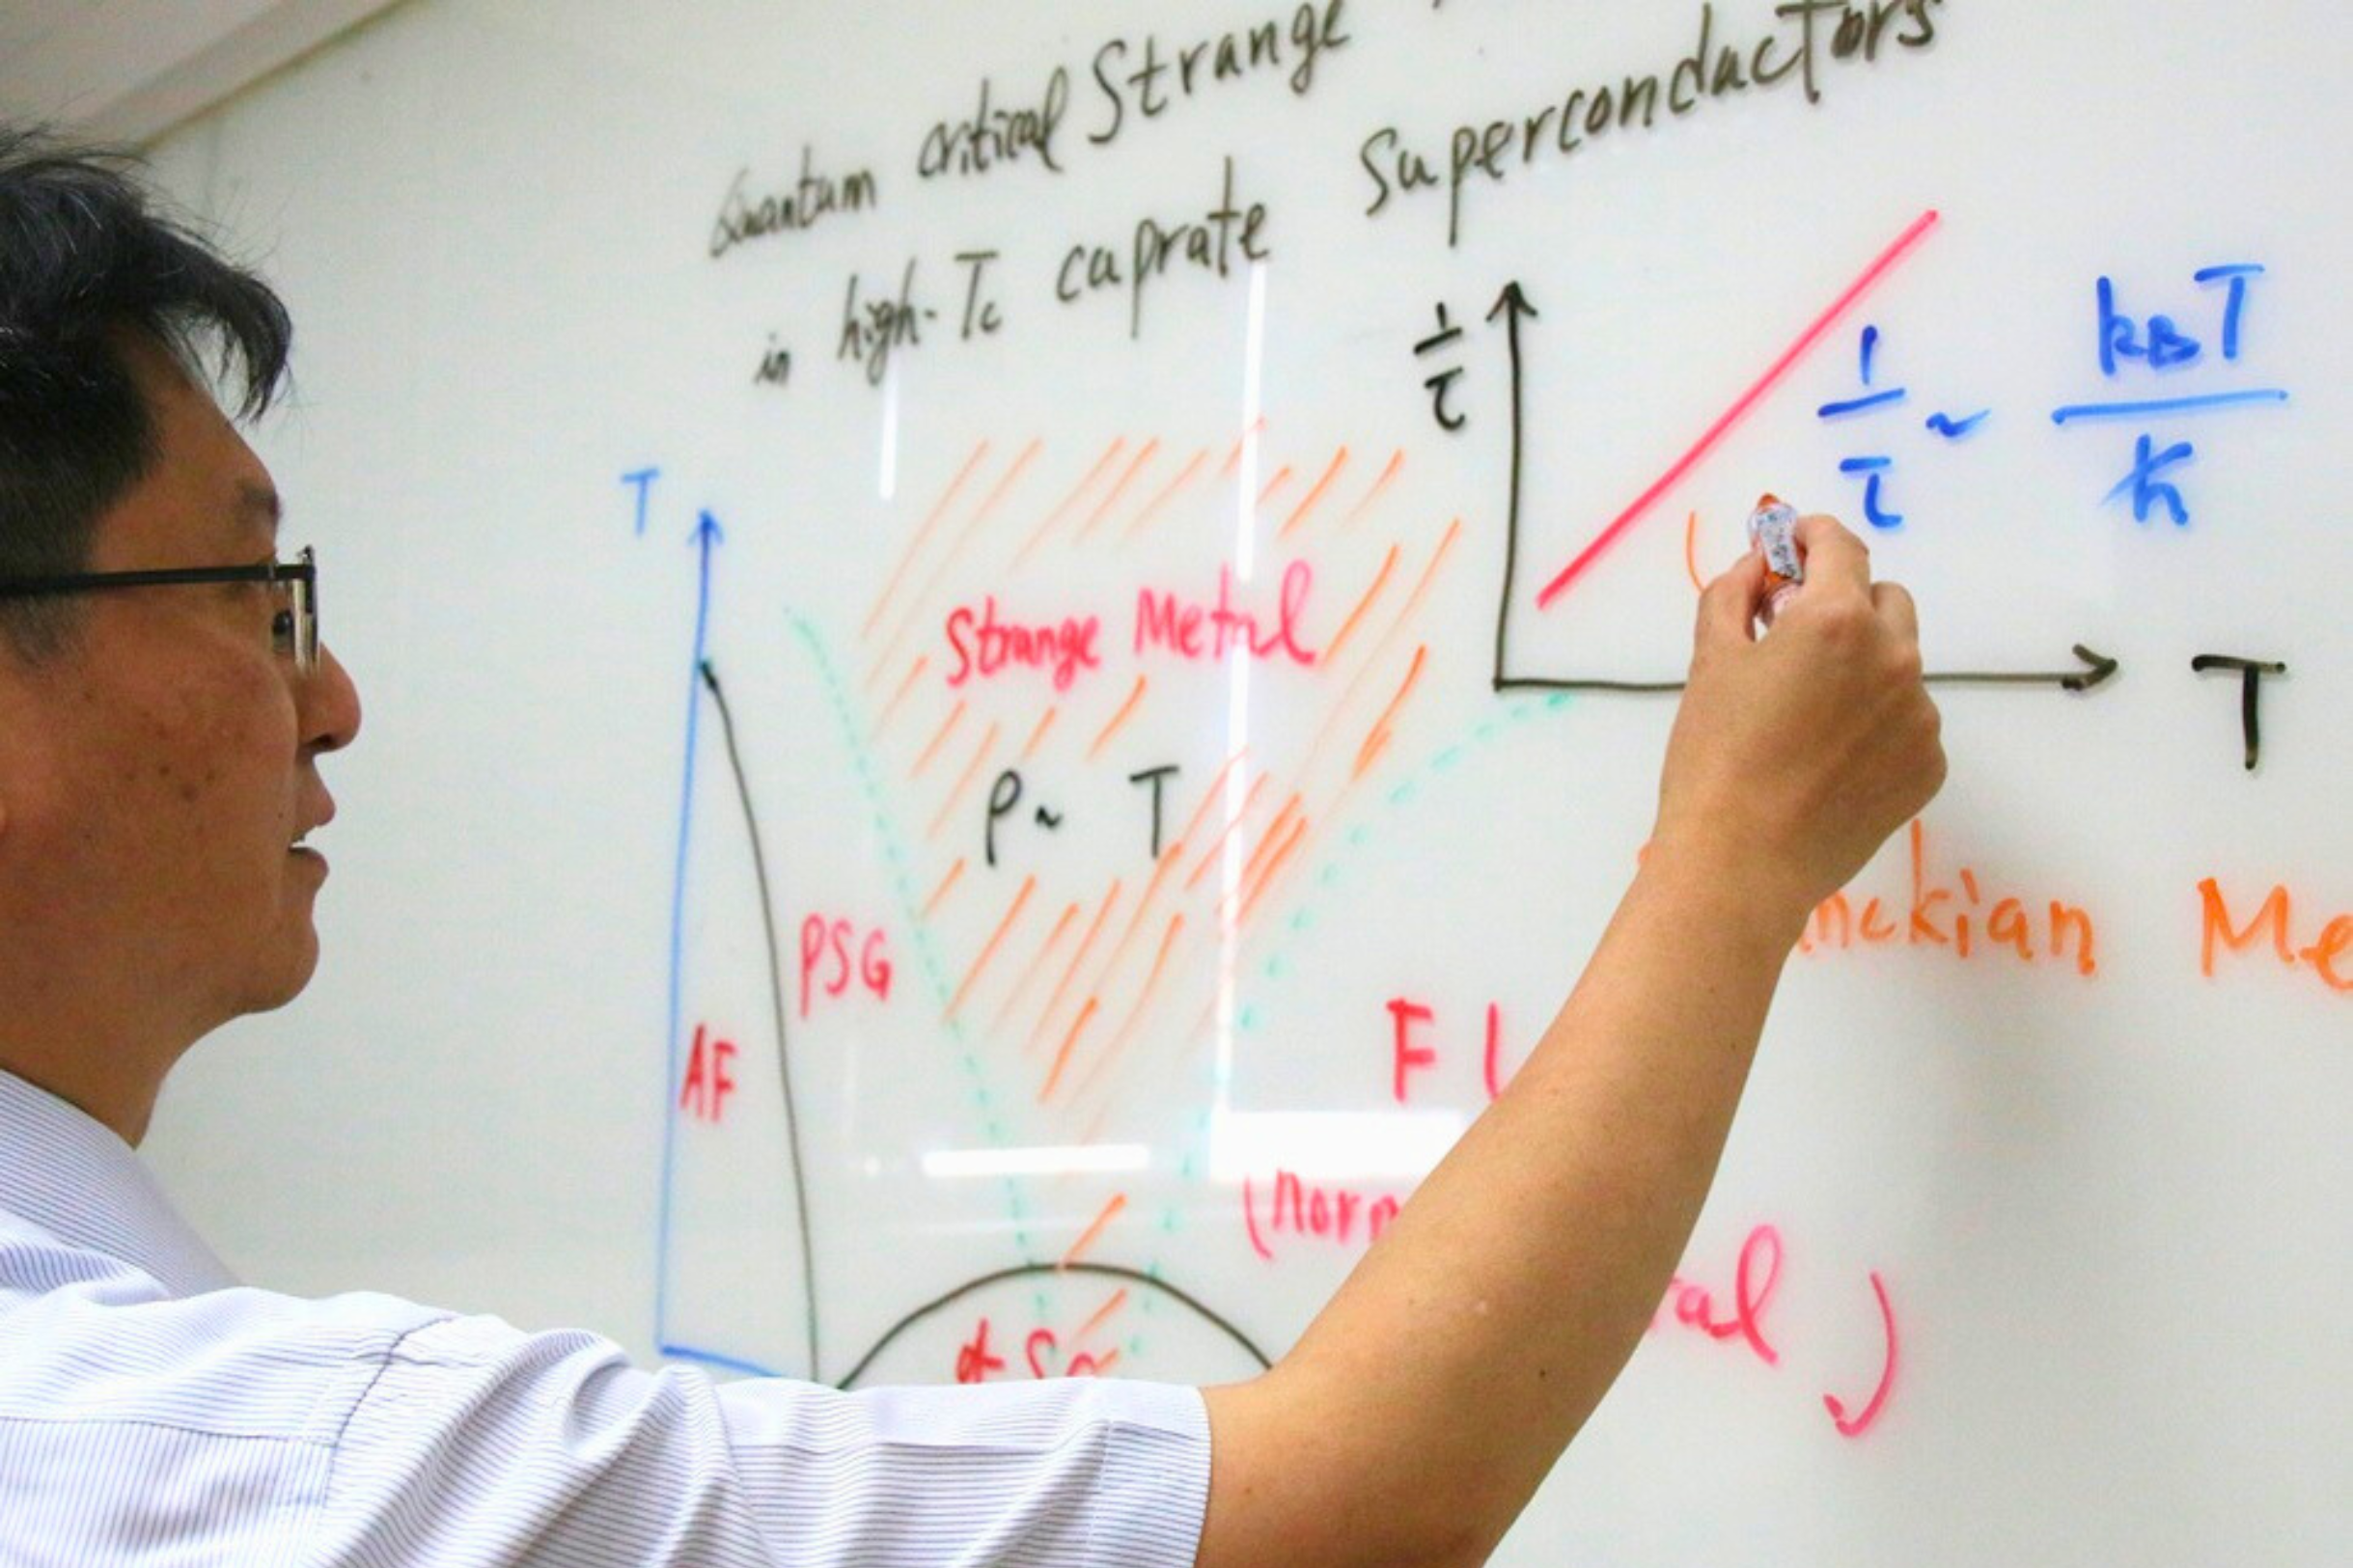 Quantum critical Strange
in high-Tc cuprate Superconductors
T
1/τ
1/τ ~ kBT/ħ
T
Strange Metal
ρ ~ T
PSG
AF
nckian Me
F L
(norm
al)
d-Sc